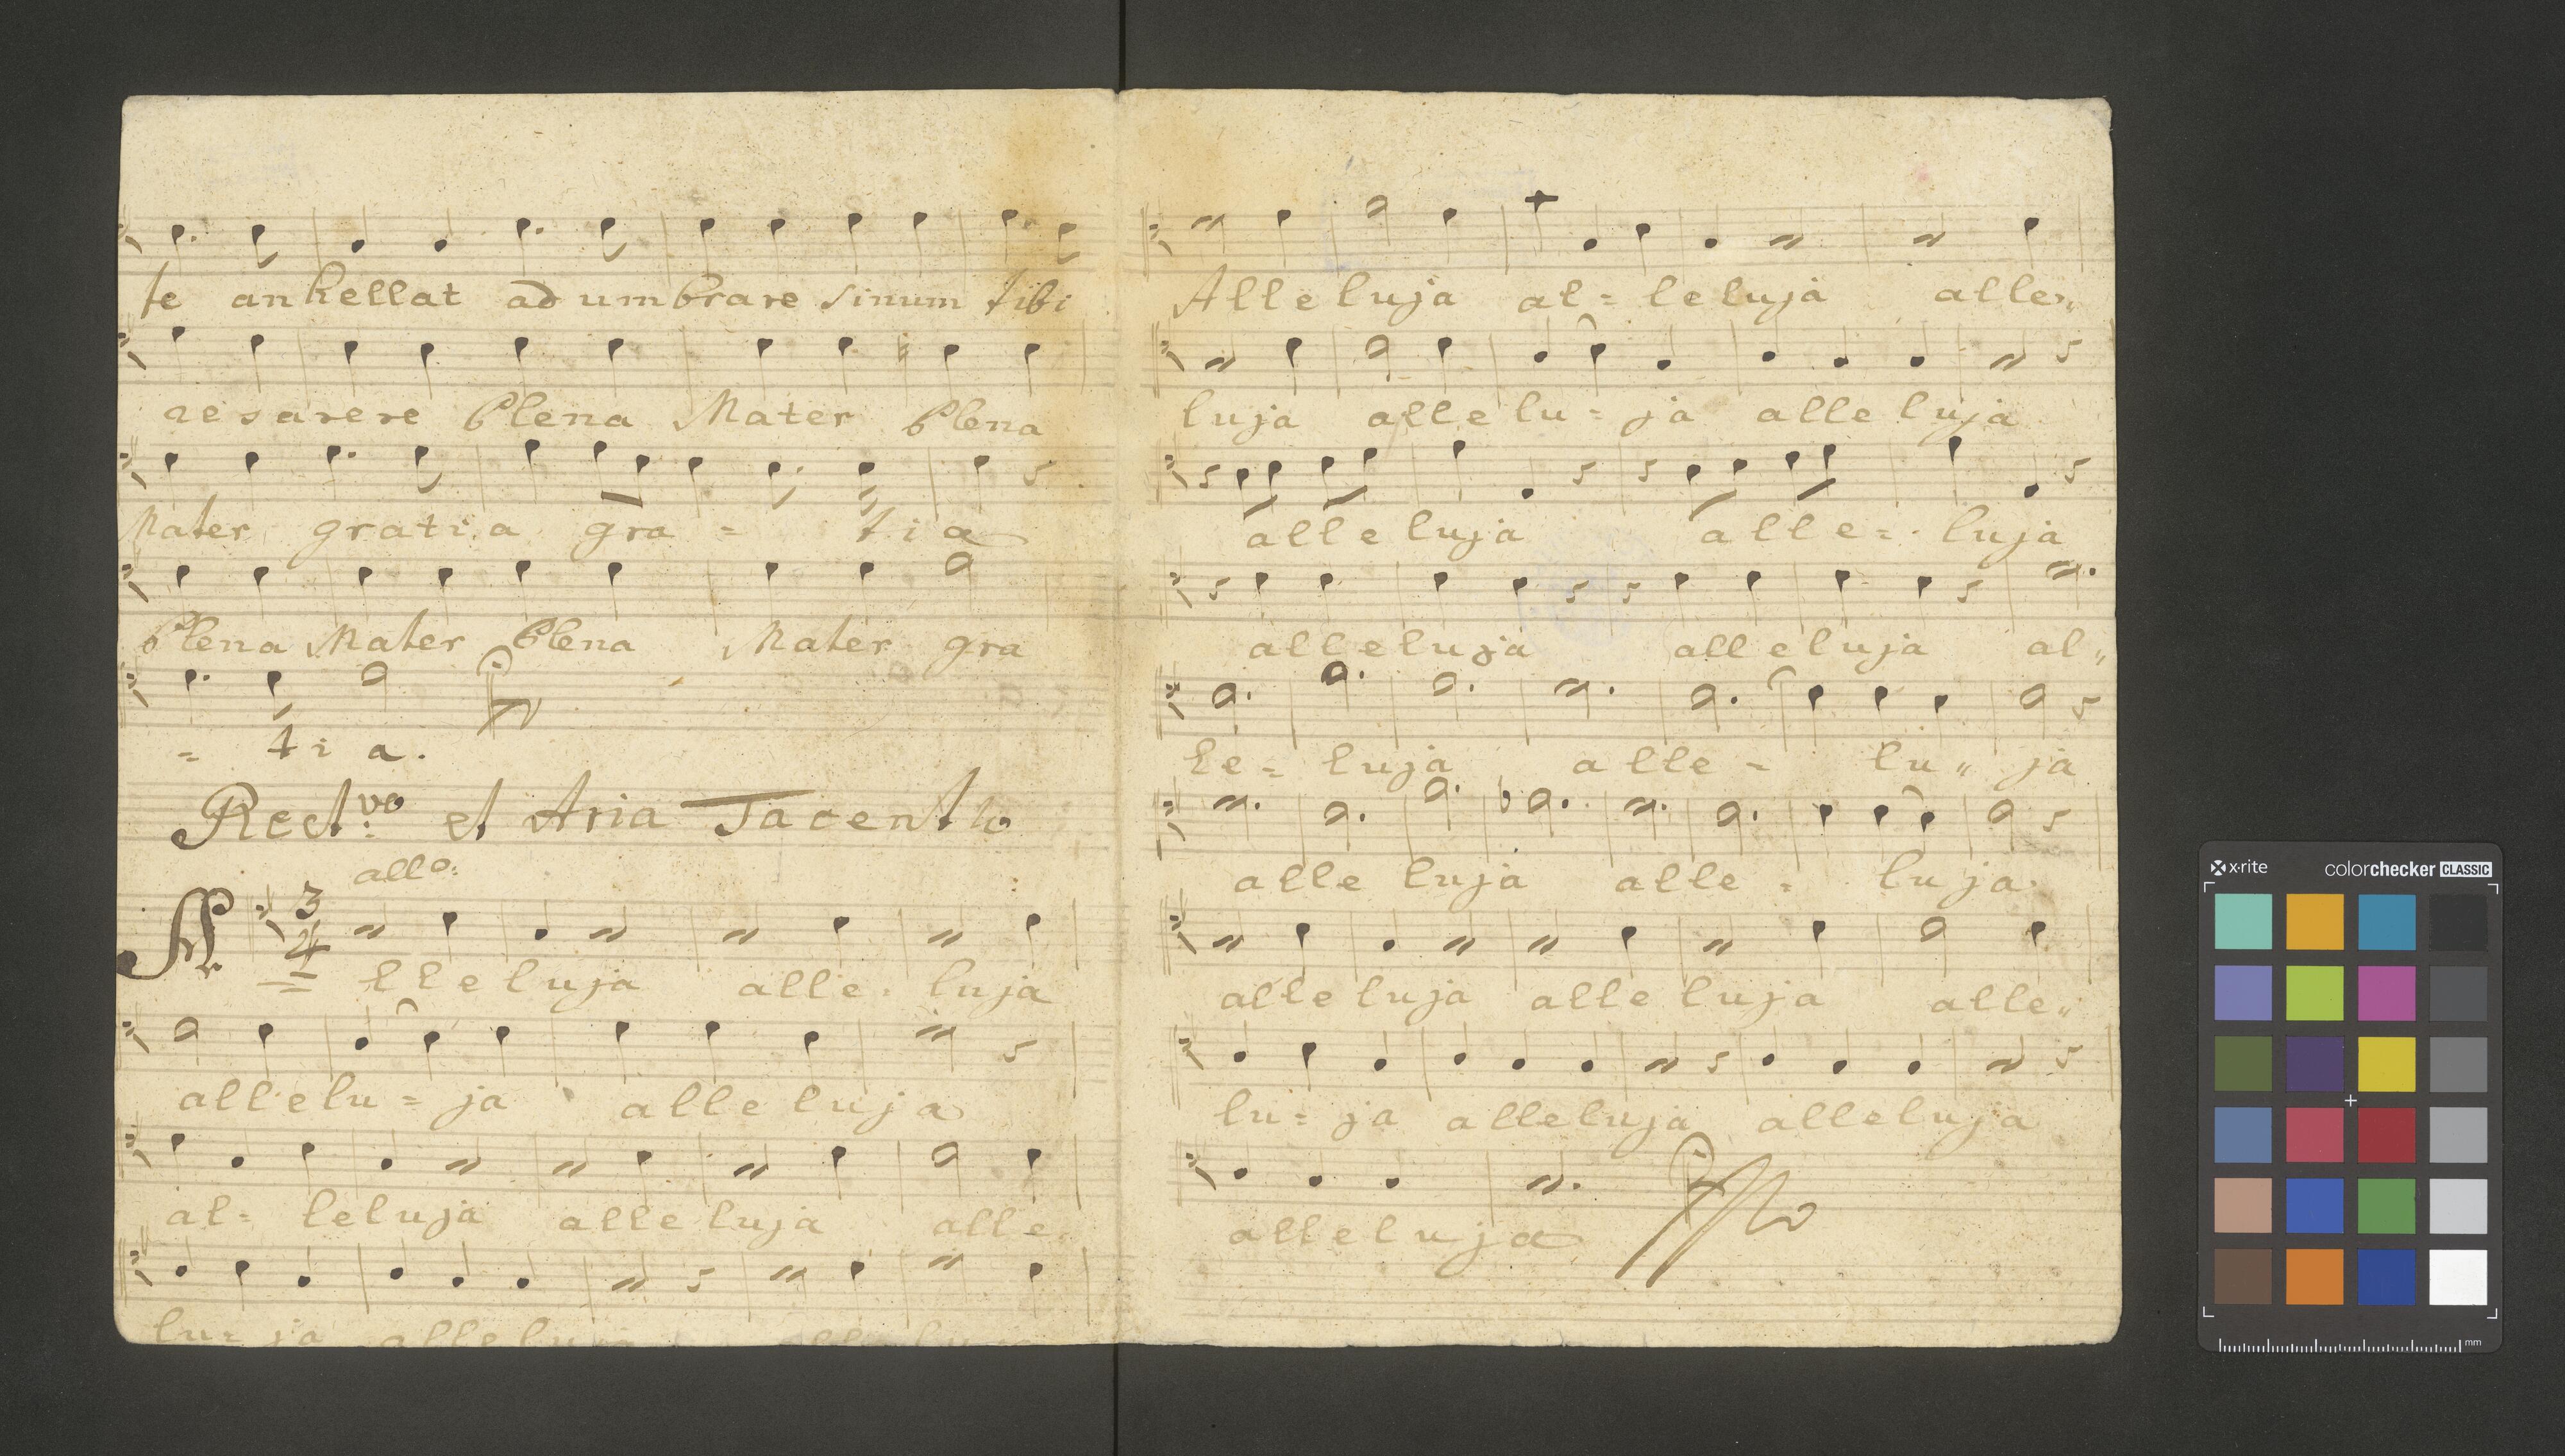 te ankellat adumbrare sinum tibi
resarere Plena Mater Plena
Mater gratia gra = tia
Plena Mater Plena Mater gra
= tia.
Rect:vo et Aria Tacent
allo:
3
4
A lleluja alle = luja
allelu = ja alleluja
al = leluja alleluja alle
lu = ja alleluja alleluja
Alleluja al = leluja alle„
luja allelu = ja alleluja
alleluja alle = luja
alleluja alleluja al„
le = luja alle = lu„ ja
alleluja alle = luja
alleluja alleluja alle„
lu = ja alleluja alleluja
alleluja
x·rite
colorchecker CLASSIC
mm